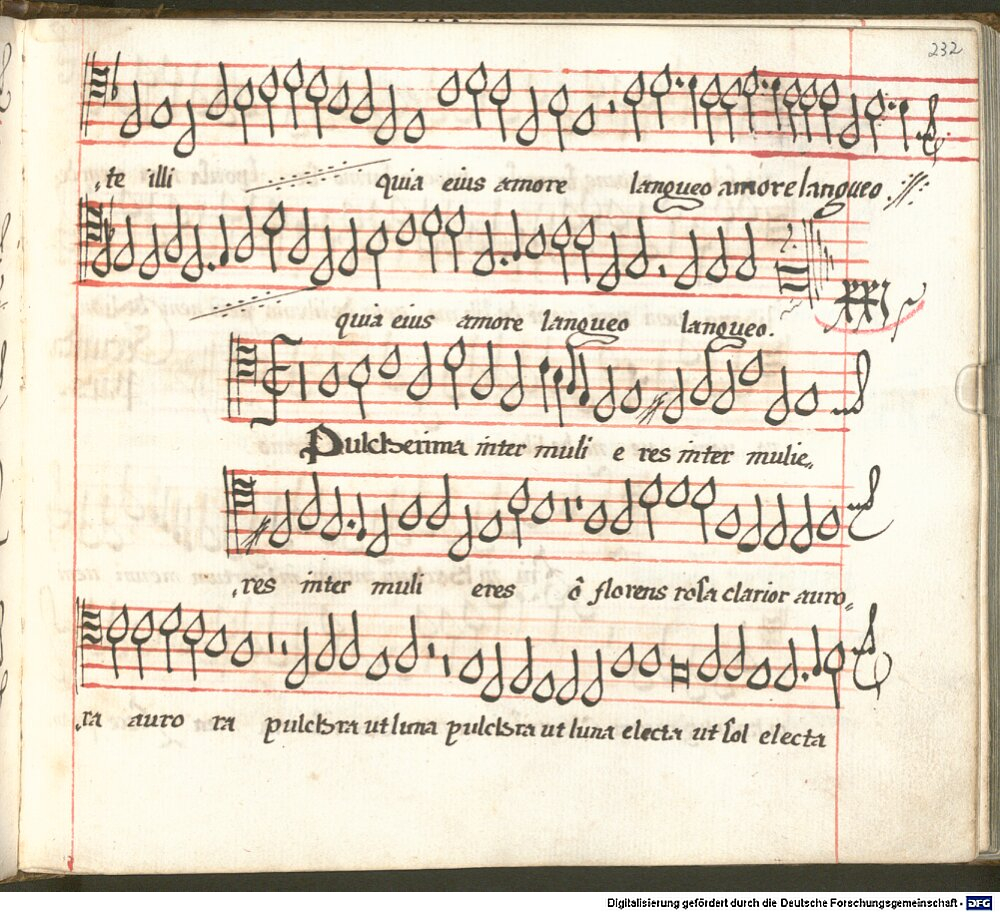 232
te illi quia eius amore langueo amore langueo
quia eius amore langueo langueo.
XXI
Pulcherima inter muli e res inter mulie
res inter muli eres ô florens rosa clarior auro
ra auro ra pulchra ut luna pulchra ut luna electa ut sol electa
Digitalisierung gefördert durch die Deutsche Forschungsgemeinschaft - DFG